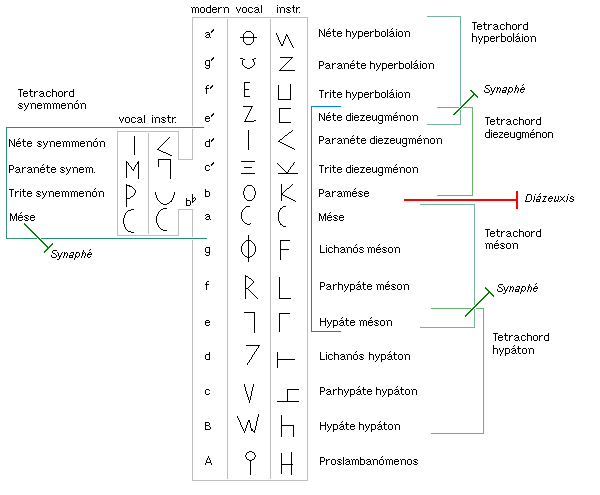 modern vocal instr.
a′ Néte hyperboláion
g′ Paranéte hyperboláion
f′ E Trite hyperboláion
e′ Z Néte diezeugménon
d′ Paranéte diezeugménon
c′ Ξ Trite diezeugménon
b O K Paramése
a C C Mése
g Φ F Lichanós méson
f R L Parhypáte méson
e Hypáte méson
d Lichanós hypáton
c V Parhypáte hypáton
B W h Hypáte hypáton
A H Proslambanómenos
Tetrachord
synemmenón
vocal instr.
Néte synemmenón I <
Paranéte synem. M
Trite synemmenón P b♭
Mése C C
Synaphé
Tetrachord
hyperboláion
Synaphé
Tetrachord
diezeugménon
Diázeuxis
Tetrachord
méson
Synaphé
Tetrachord
hypáton